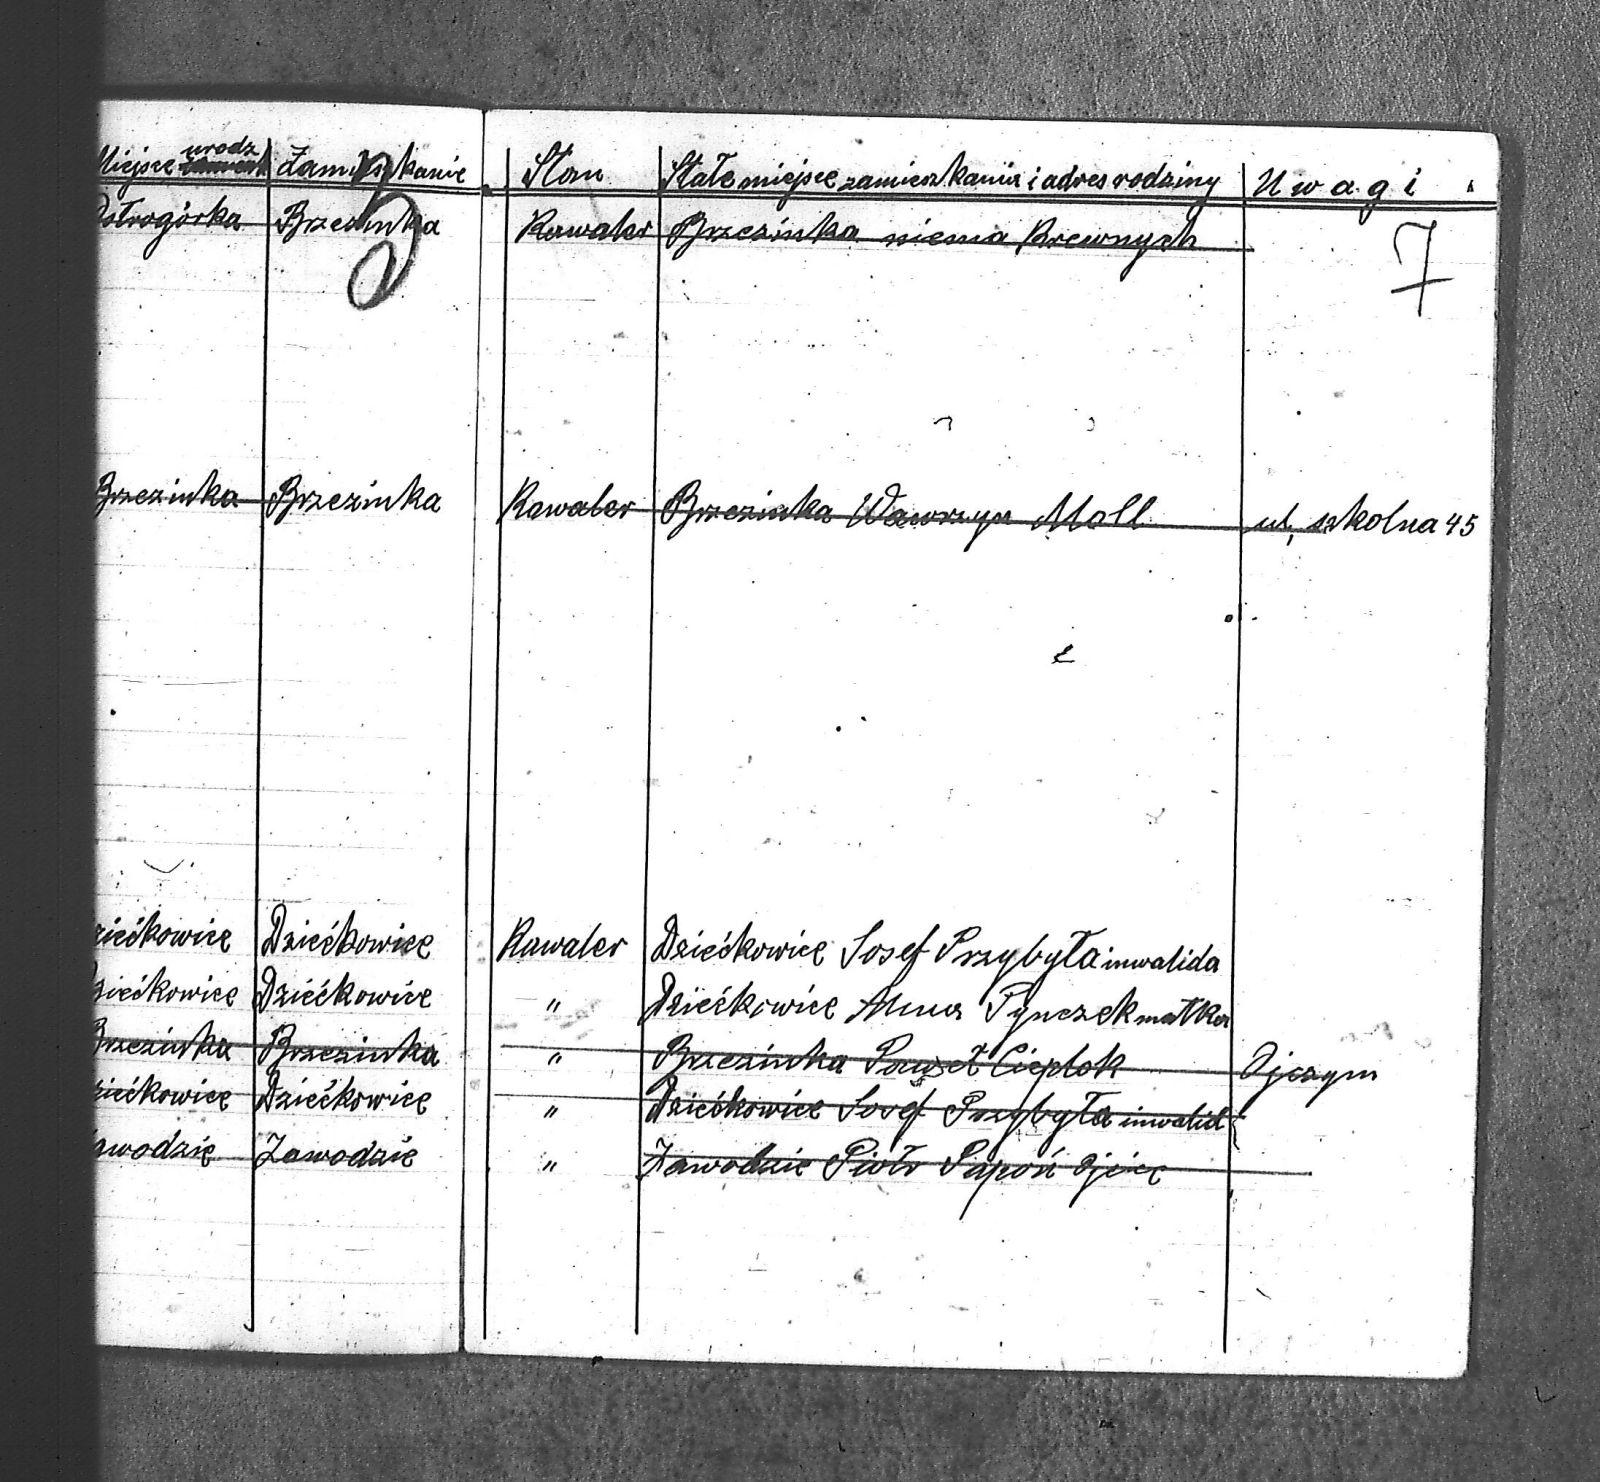 Miejsce urodz Zamieszkanie Stan Stałe miejsce zamieszkania i adres rodziny Uwagi
Ostrogórka Brzezinka Kawaler Brzezinka niema Krewnych 7
Brzezinka Brzezinka Kawaler Brzezinka Wawrzyn Moll ul, szkolna 45
Dziećkowice Dziećkowice Kawaler Dziećkowice Josef Przybyła inwalida
Dziećkowice Dziećkowice " Dziećkowice Anna Pynczek matka
Brzezinka Brzezinka " Brzezinka Paweł Cieplok Ojczym
Dziećkowice Dziećkowice " Dziećkowice Josef Przybyła inwalid
Zawodzie Zawodzie " Zawodzie Piotr Papoń Ojciec